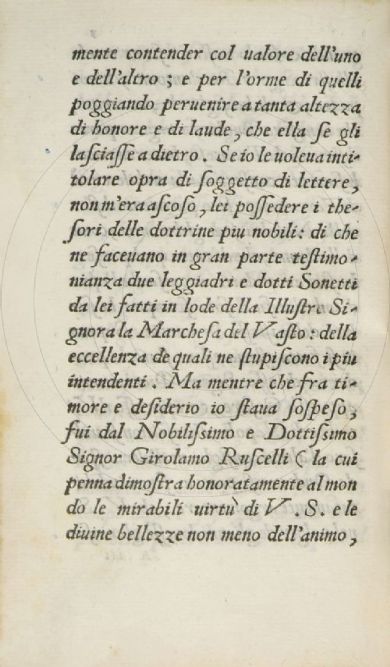 mente contender col ualore dell'uno
e dell'altro ; e per l'orme di quelli
poggiando peruenire a tanta altezza
di honore e di laude, che ella se gli
lasciasse a dietro. Se io le uoleua inti-
tolare opra di soggetto di lettere,
non m'era ascoso, lei possedere i the-
sori delle dottrine piu nobili: di che
ne faceuano in gran parte testimo-
nianza due leggiadri e dotti Sonetti
da lei fatti in lode della Illustre Si-
gnora la Marchesa del Vasto: della
eccellenza de quali ne stupiscono i piu
intendenti. Ma mentre che fra ti-
more e desiderio io staua sospeso,
fui dal Nobilissimo e Dottissimo
Signor Girolamo Ruscelli (la cui
penna dimostra honoratamente al mon
do le mirabili uirtù di V. S. e le
diuine bellezze non meno dell'animo,